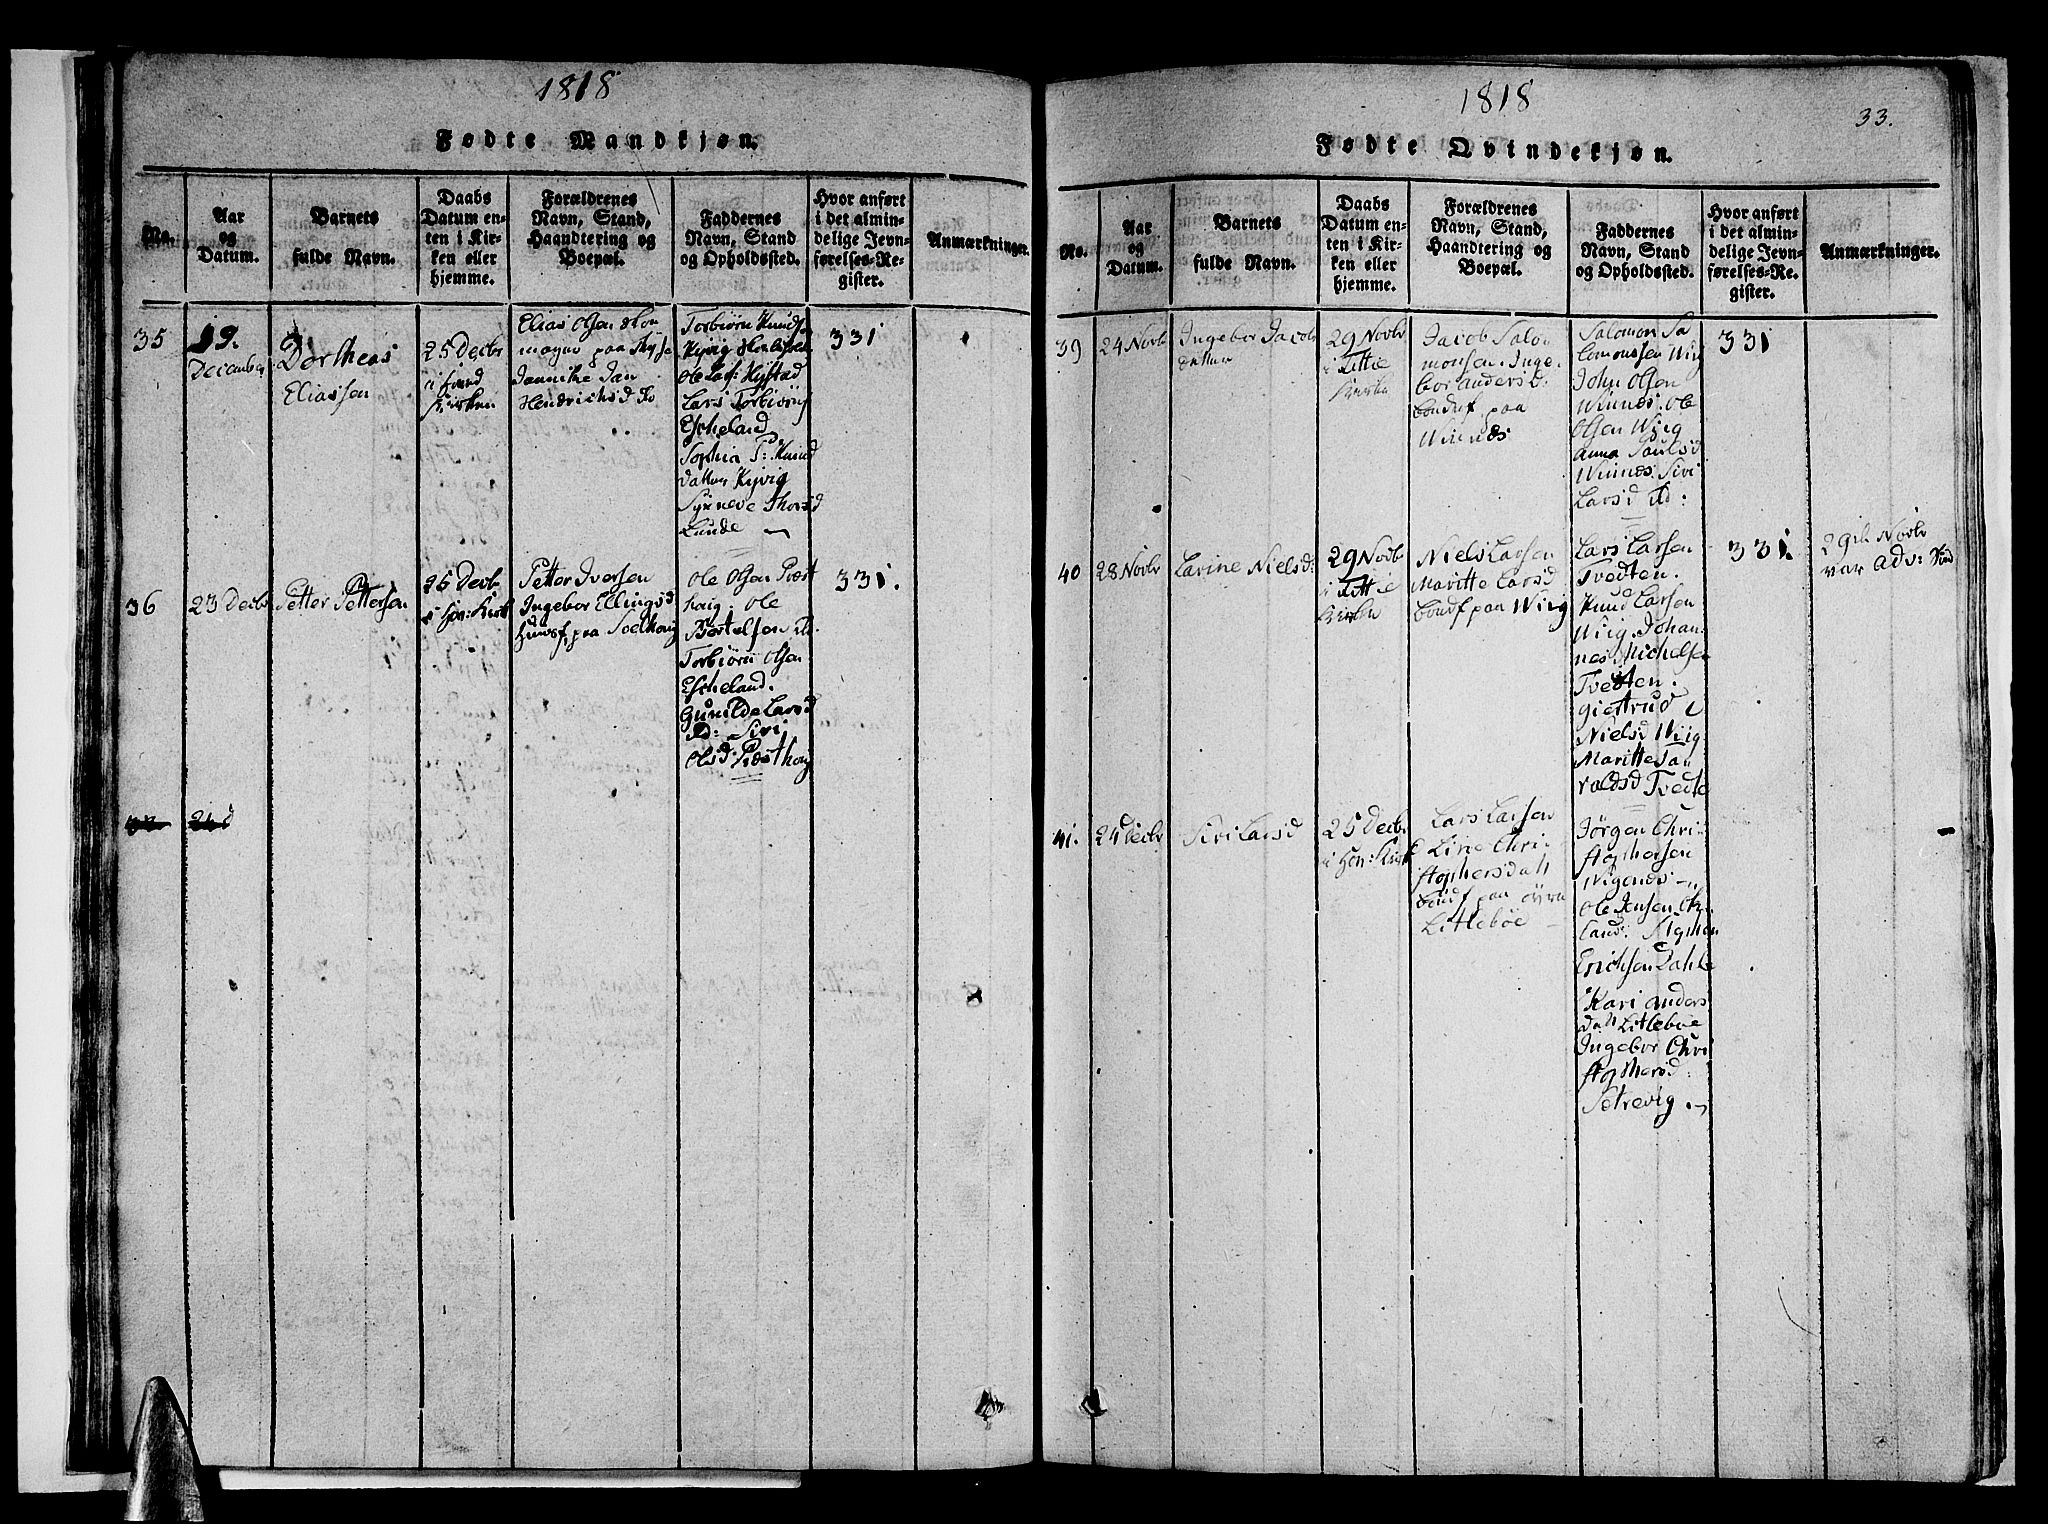 1818
Fødte Mandkjøn.
No.
Aar
og
Datum.
Barnets
fulde Navn.
Daabs
Datum en-
ten i Kir-
ken eller
hjemme.
Forældrenes
Navn, Stand,
Haandtering og
Boepæl.
Faddernes
Navn, Stand
og Opholdssted.
Hvor anført
i det almin-
delige Jevn-
førelses-Re-
gister.
Anmærkninger.
35
19.
December
Dortheas
Eliassen
25 Decbr
i
Kirken
Elias Olsen
paa
Jannike Jan
Hendrichsd
Torbiörn Knuds
Kyvig
Ole Lars: Kystad
Lars Torbiörns
Escheland
Sophia P: Knud
datter Kyvig
Synneve Thorsd
Lunde
331
36
23 Decbr
Petter Pettersen
25 Decbr
i Hov: Kirk
Petter Iversen
Ingebor Ellingsd
Huusf. paa
Ole Olsen Præst
houg. Ole
Bertelsen ibd.
Torbiörn Olsen
Escheland.
Gunilde Larsd
ibd: Siri
Olsd: Præsthoug
331.
24 d
1818
33.
Fødte Qvindekjøn.
No.
Aar
og
Datum.
Barnets
fulde Navn.
Daabs
Datum en-
ten i Kir-
ken eller
hjemme.
Forældrenes
Navn, Stand,
Haandtering og
Boepæl.
Faddernes
Navn, Stand
og Opholdssted.
Hvor anført
i det almin-
delige Jevn-
førelses-Re-
gister.
Anmærkninger.
39
24 Novbr
Ingebor Jacobs
datter
29 Novbr
i Tittie
Kirke
Jacob Salo
monsen. Inge
bor Andersd.
bondf. paa
Winnes
Salomon Sa
lomonsen Wiig
John Olsen
Winnes. Ole
Olsen Wiig
Anna Paulsd
Winnes. Siri
Larsd ibd:
331
40
28 Novbr
Larine Nielsd:
29 Novbr
i Tittie
Kirken
Niels Larsen
Maritte Larsd
bondf paa Wiig
Lars Larsen
Tvedten.
Knud Larsen
Wiig. Johan
nes Michelsen
Tvedten.
Giertrud
Nielsd Wiig.
Maritte Ta
raldsd Tvedte
331.
29de Novbr
var Adv: Sönd
41.
24 Decbr
Siri Larsd
25 Decbr
i Hov: Kirk
Lars Larsen
Line Chri
stophersdatt
bondf paa öyre
Litleböe
Jörgen Chri
stophersen
Wigenes
Ole Jensen
land. Stephen
Erichsen Dahle
Kari Anders
datt Litleböe
Ingebor Chri
stophersd:
Setrevig